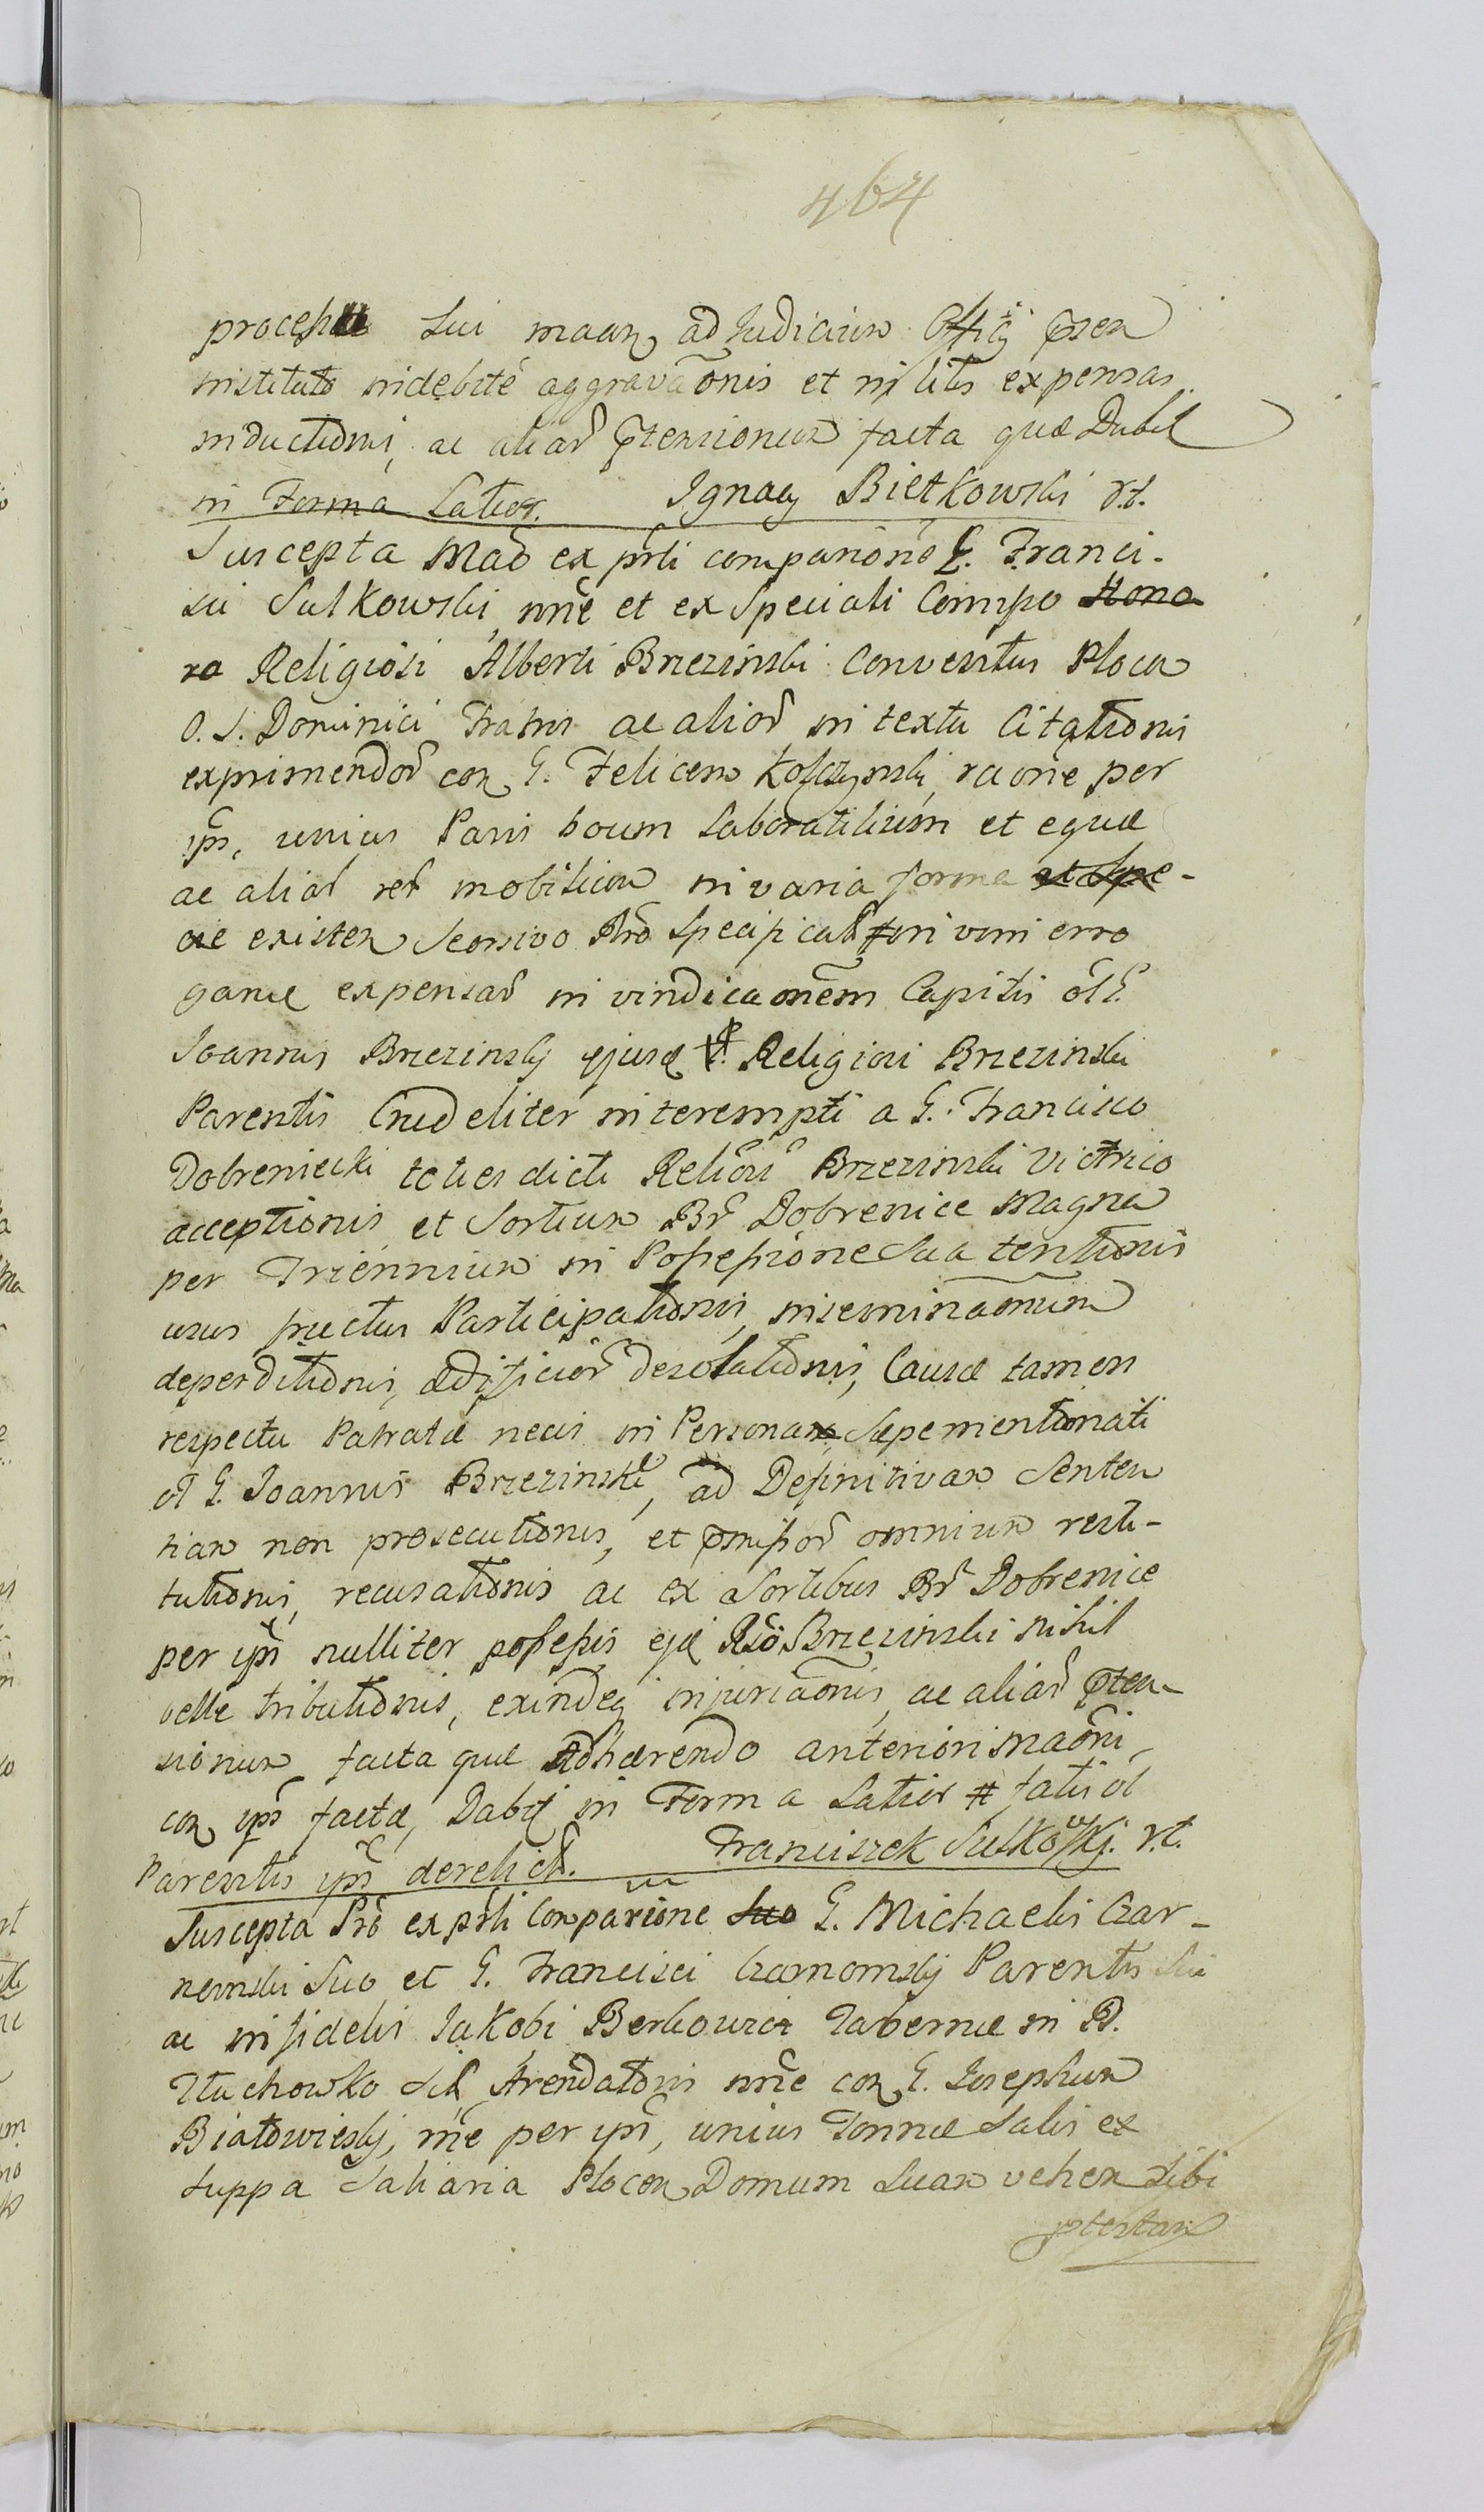 464
sui ad Judicium Officij
indebite aggravaõnis et in litis expensas
inductionis, ac aliar̃ ptensionum facta quæ Dabit
in Forma Latior. Ignacy Bietkowski
Suscepta Mao ex psli comparitione G. Franci-
sci Sulkowski, nne et ex Speciali Compo Hono
ra Religiosi Alberti Brzezinski Conventus Ploceñ
O. S. Dominici Fratris ac alior̃ in textu Citationis
exprimendor̃ con G. Felicem raone per
ips, unius Paris boum Laboratilium et equæ
ac aliar rer mobilium in varia forma et Spe-
cie existen Seorsivo specificat in vim erro
gandæ expensar̃ in vindicaonem Capitis ol G.
Joannis Brzezinskij ejusd Religiosi Brzezinski
Parentis Crudeliter interempti a G. Francisco
Dobreniecki toties dicti Reliori Brzezinski Victrico
acceptionis et Sortium Br̃ Dobrenice Magna
per Triennium in Possessione Sua tentionis
usus fructus Participationis, inseminaonum
deperditionis, ædificior̃ desolationis, Causæ tamen
respectu Patratæ necis in Personam Sæpe mentionati
ol G. Joannis Brzezinski, ad Definitivam Senten
tiam non prosecutionis, et pmissor̃ omnium resti-
tutionis, recusationis ac ex Sortibus Br̃ Dobrenice
per ips nulliter possessis ejd Brzezinski nihil
velle tributionis, exindeq injuriaonis, ac aliar̃ pten-
sionum facta quæ Adhærendo anteriori Maoni,
con ips factæ, Dabit in Forma Latior # fatis ol
Parentis ips derelict. Franciszek Sulkowskj. V.t.
Suscepta Pro ex psli Comparitione Suo G. Michaelis Czar-
nemski Suo et G. Francisci Czarnomskij Parentis Sui
ac infidelis Jakobi Berkowicz Tabernæ in B.
Arendatoris nne con G. Josephum
rne per ips, unius Tonnæ Salis ex
Suppa Saliaria Plocen Domum Suam vehen Sibi